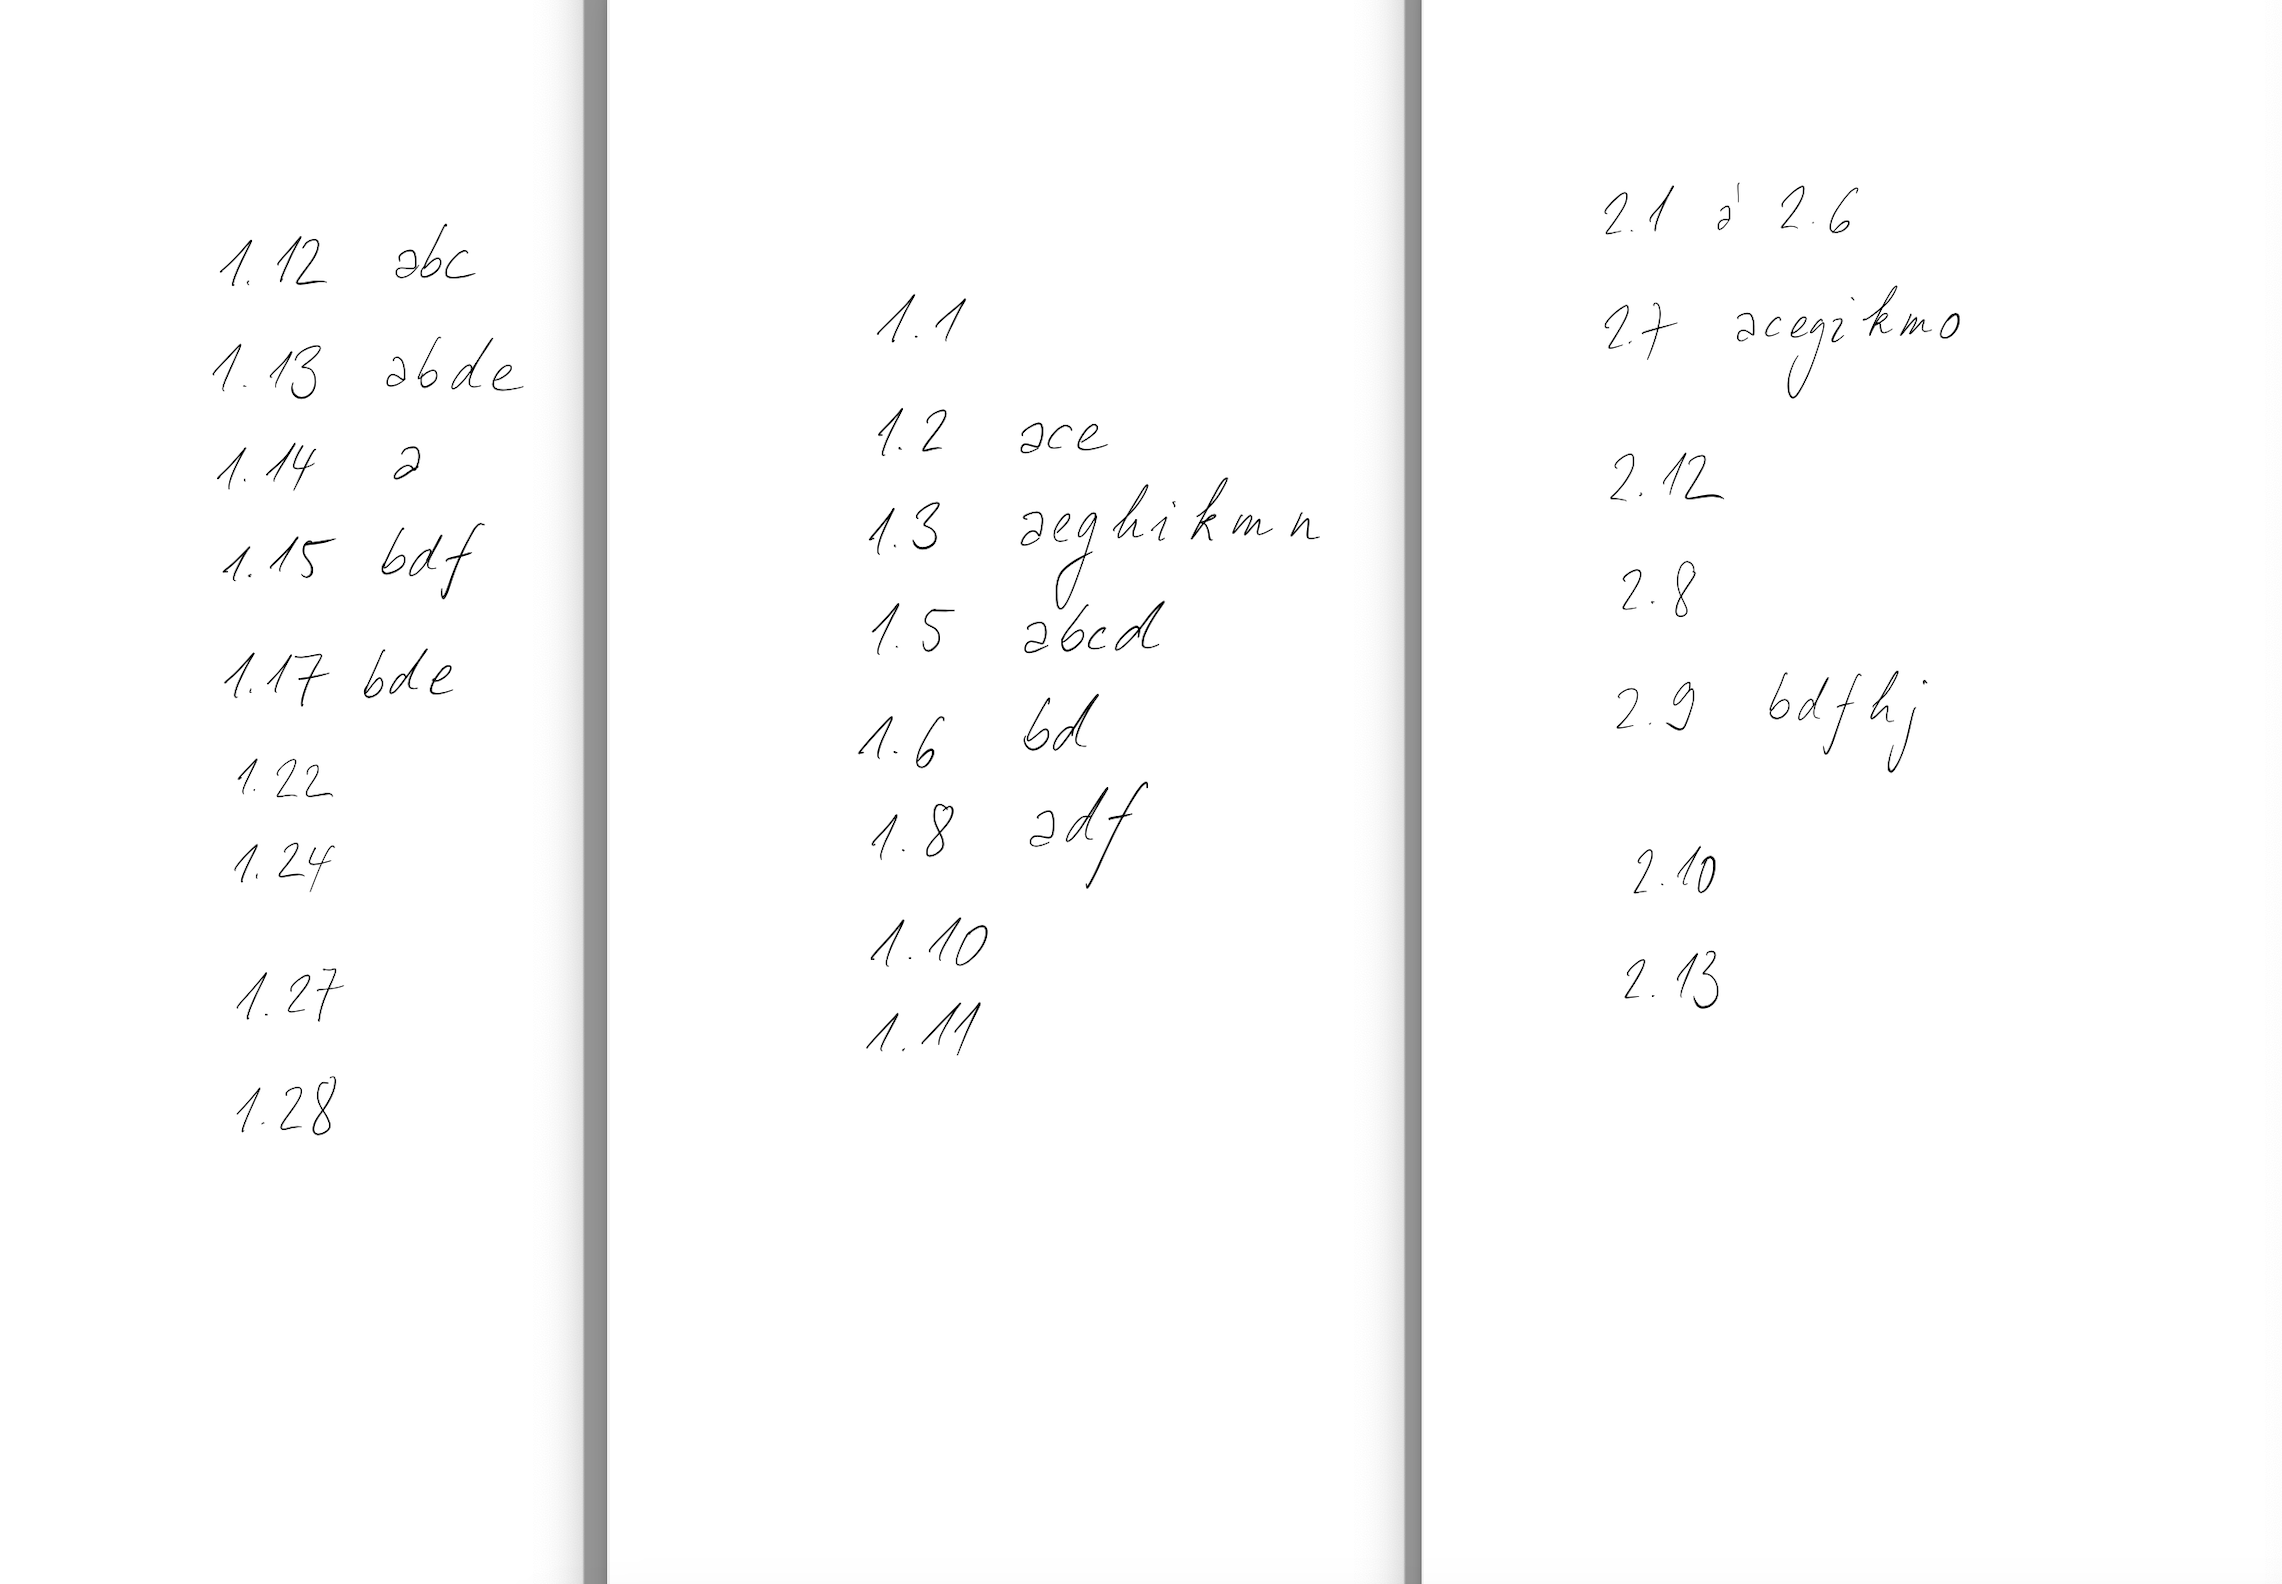 1.12 abc
1.13 abde
1.14 a
1.15 bdf
1.17 bde
1.22
1.24
1.27
1.28
1.1
1.2 ace
1.3 aeghikmn
1.5 abcd
1.6 bd
1.8 adf
1.10
1.11
2.1 à 2.6
2.7 acegikmo
2.12
2.8
2.9 bdfhj
2.10
2.13